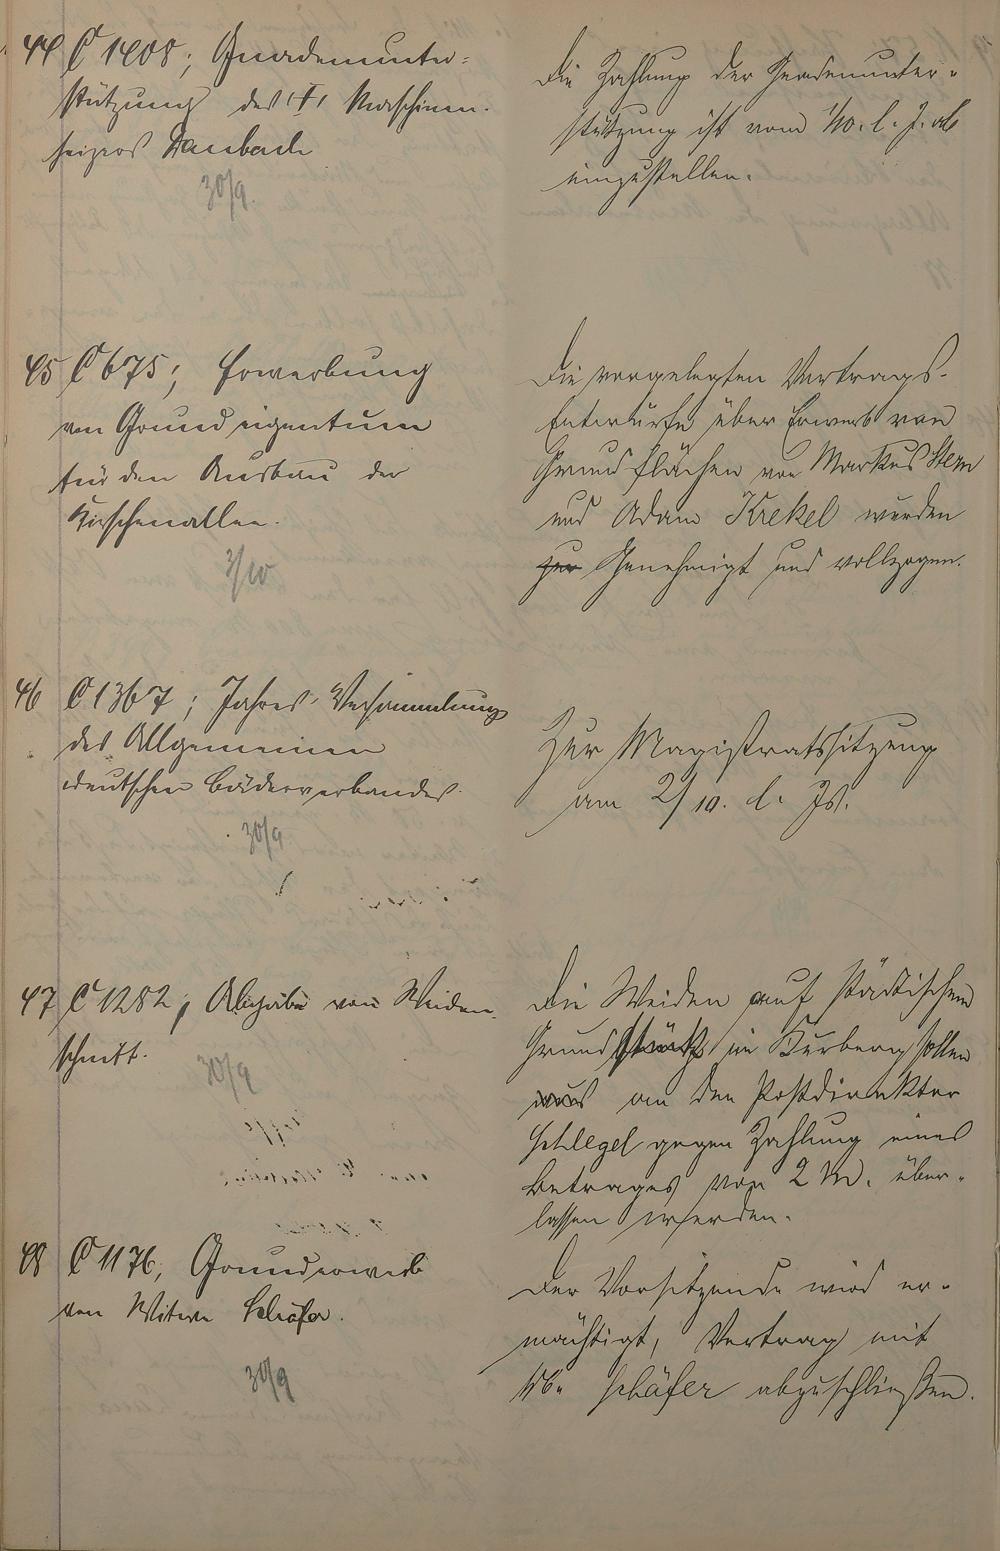 44 C 1408; Gnadenunter-
stützung des (†) Maschinen-
heizers Daubach
30/9.
Die Zahlung der Gnadenunter-
stützung ist vom 1/10. l. J. ab
einzustellen.
45 C 675; Erwerbung
von Grundeigentum
für den Ausbau der
Kirschenallee.
3/10
Die vorgelegten Vertrags-
Entwürfe über Erwerb von
Grundflächen von Markus Stern
und Adam Krekel wurden
zur Genehmigt und vollzogen.
46 C 1367; Jahres-Versammlung
des Allgemeinen
deutschen Bäderverbandes.
30/9
Zur Magistratssitzung
am 2/10. l. Js.
47 C 1282; Abgabe von Weiden-
schnitt.
30/9
Die Weiden auf städtischem
Grundstück im Kurberg sollen
an den Postdirektor
Schlegel gegen Zahlung eines
Betrages von 2 M. über-
lassen werden.
48 C 1176, Grunderwerb
von Witwe Schäfer.
30/9
Der Vorsitzende wird er-
mächtigt, Vertrag mit
Ww. Schäfer abzuschließen.